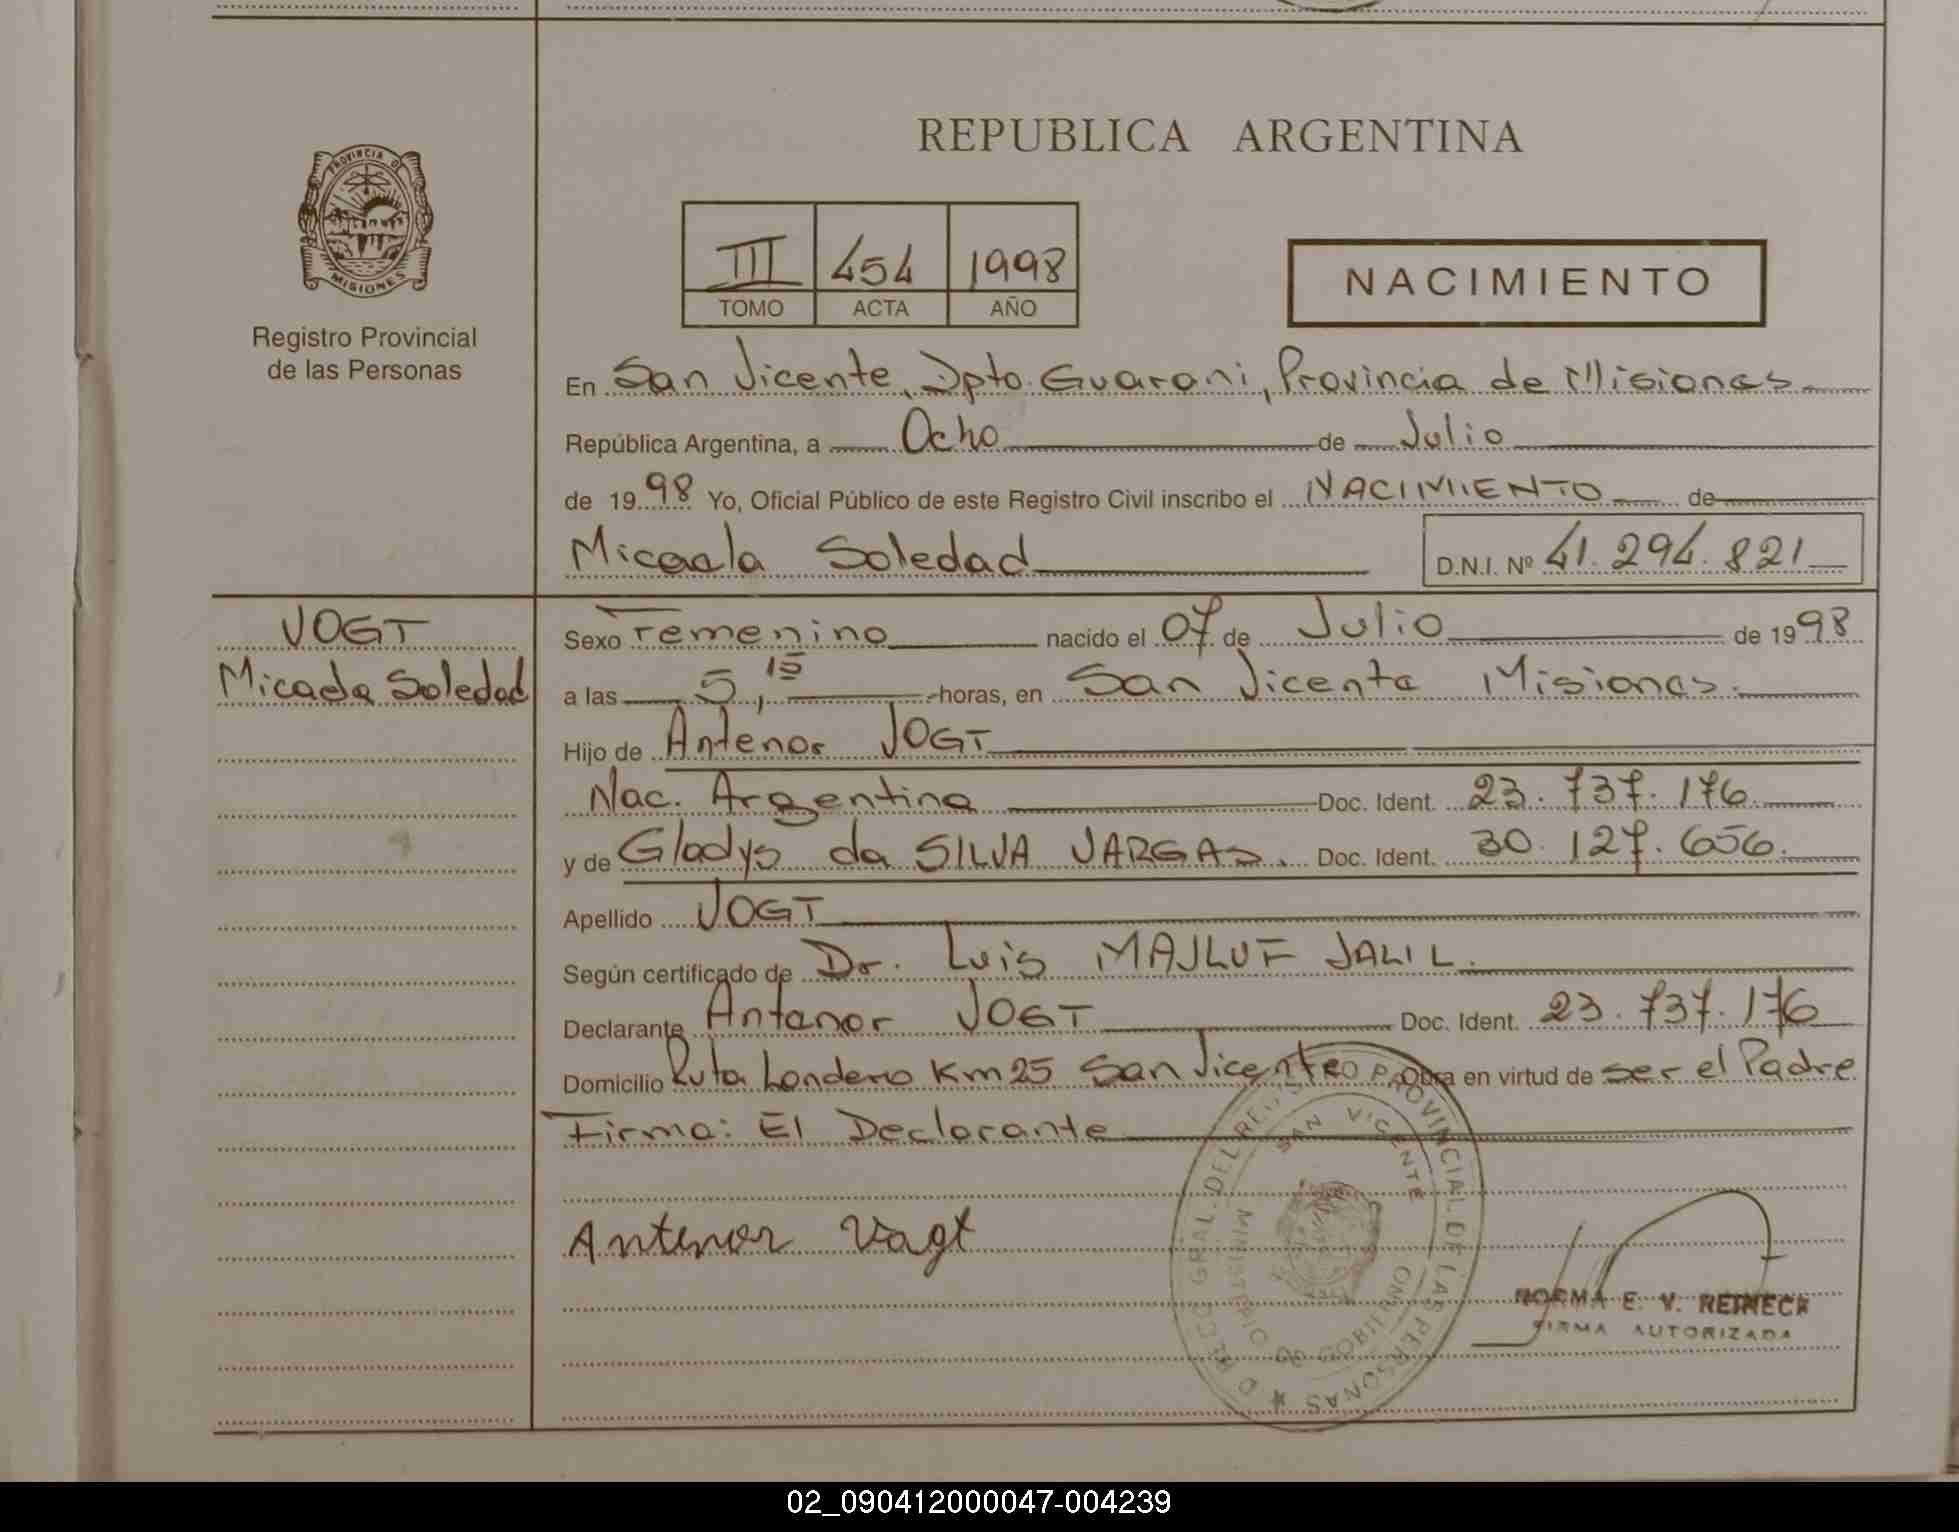 REPUBLICA ARGENTINA
PROVINCIA D
MISIONES
Registro Provincial
de las Personas
III 454 1998
TOMO ACTA AÑO
NACIMIENTO
En San Vicente, Dpto. Guarani, Provincia de Misiones
República Argentina, a Ocho de Julio
de 1998 Yo, Oficial Público de este Registro Civil inscribo el NACIMIENTO de
Micaela Soledad D.N.I. Nº 41.294.821
VOGT
Micaela Soledad
Sexo Femenino nacido el 07 de Julio de 1998
a las 5,15 horas, en San Vicente Misiones.
Hijo de Antenor VOGT
Nac. Argentina Doc. Ident. 23.737.176
y de Gladys da SILVA VARGAS. Doc. Ident. 30.127.656.
Apellido VOGT
Según certificado de Dr. Luis MAJLUF JALIL.
Declarante Antenor VOGT Doc. Ident. 23.737.176
Domicilio Ruta Londero Km 25 San Vicente Obra en virtud de ser el Padre
Firma: El Declarante
Antenor Vogt
DIRECC GRAL. DEL REG PROVINCIAL DE LAS PERSONAS
SAN VICENTE
MINISTERIO DE GOBIERNO
NORMA E. V. REINECK
FIRMA AUTORIZADA
02_090412000047-004239